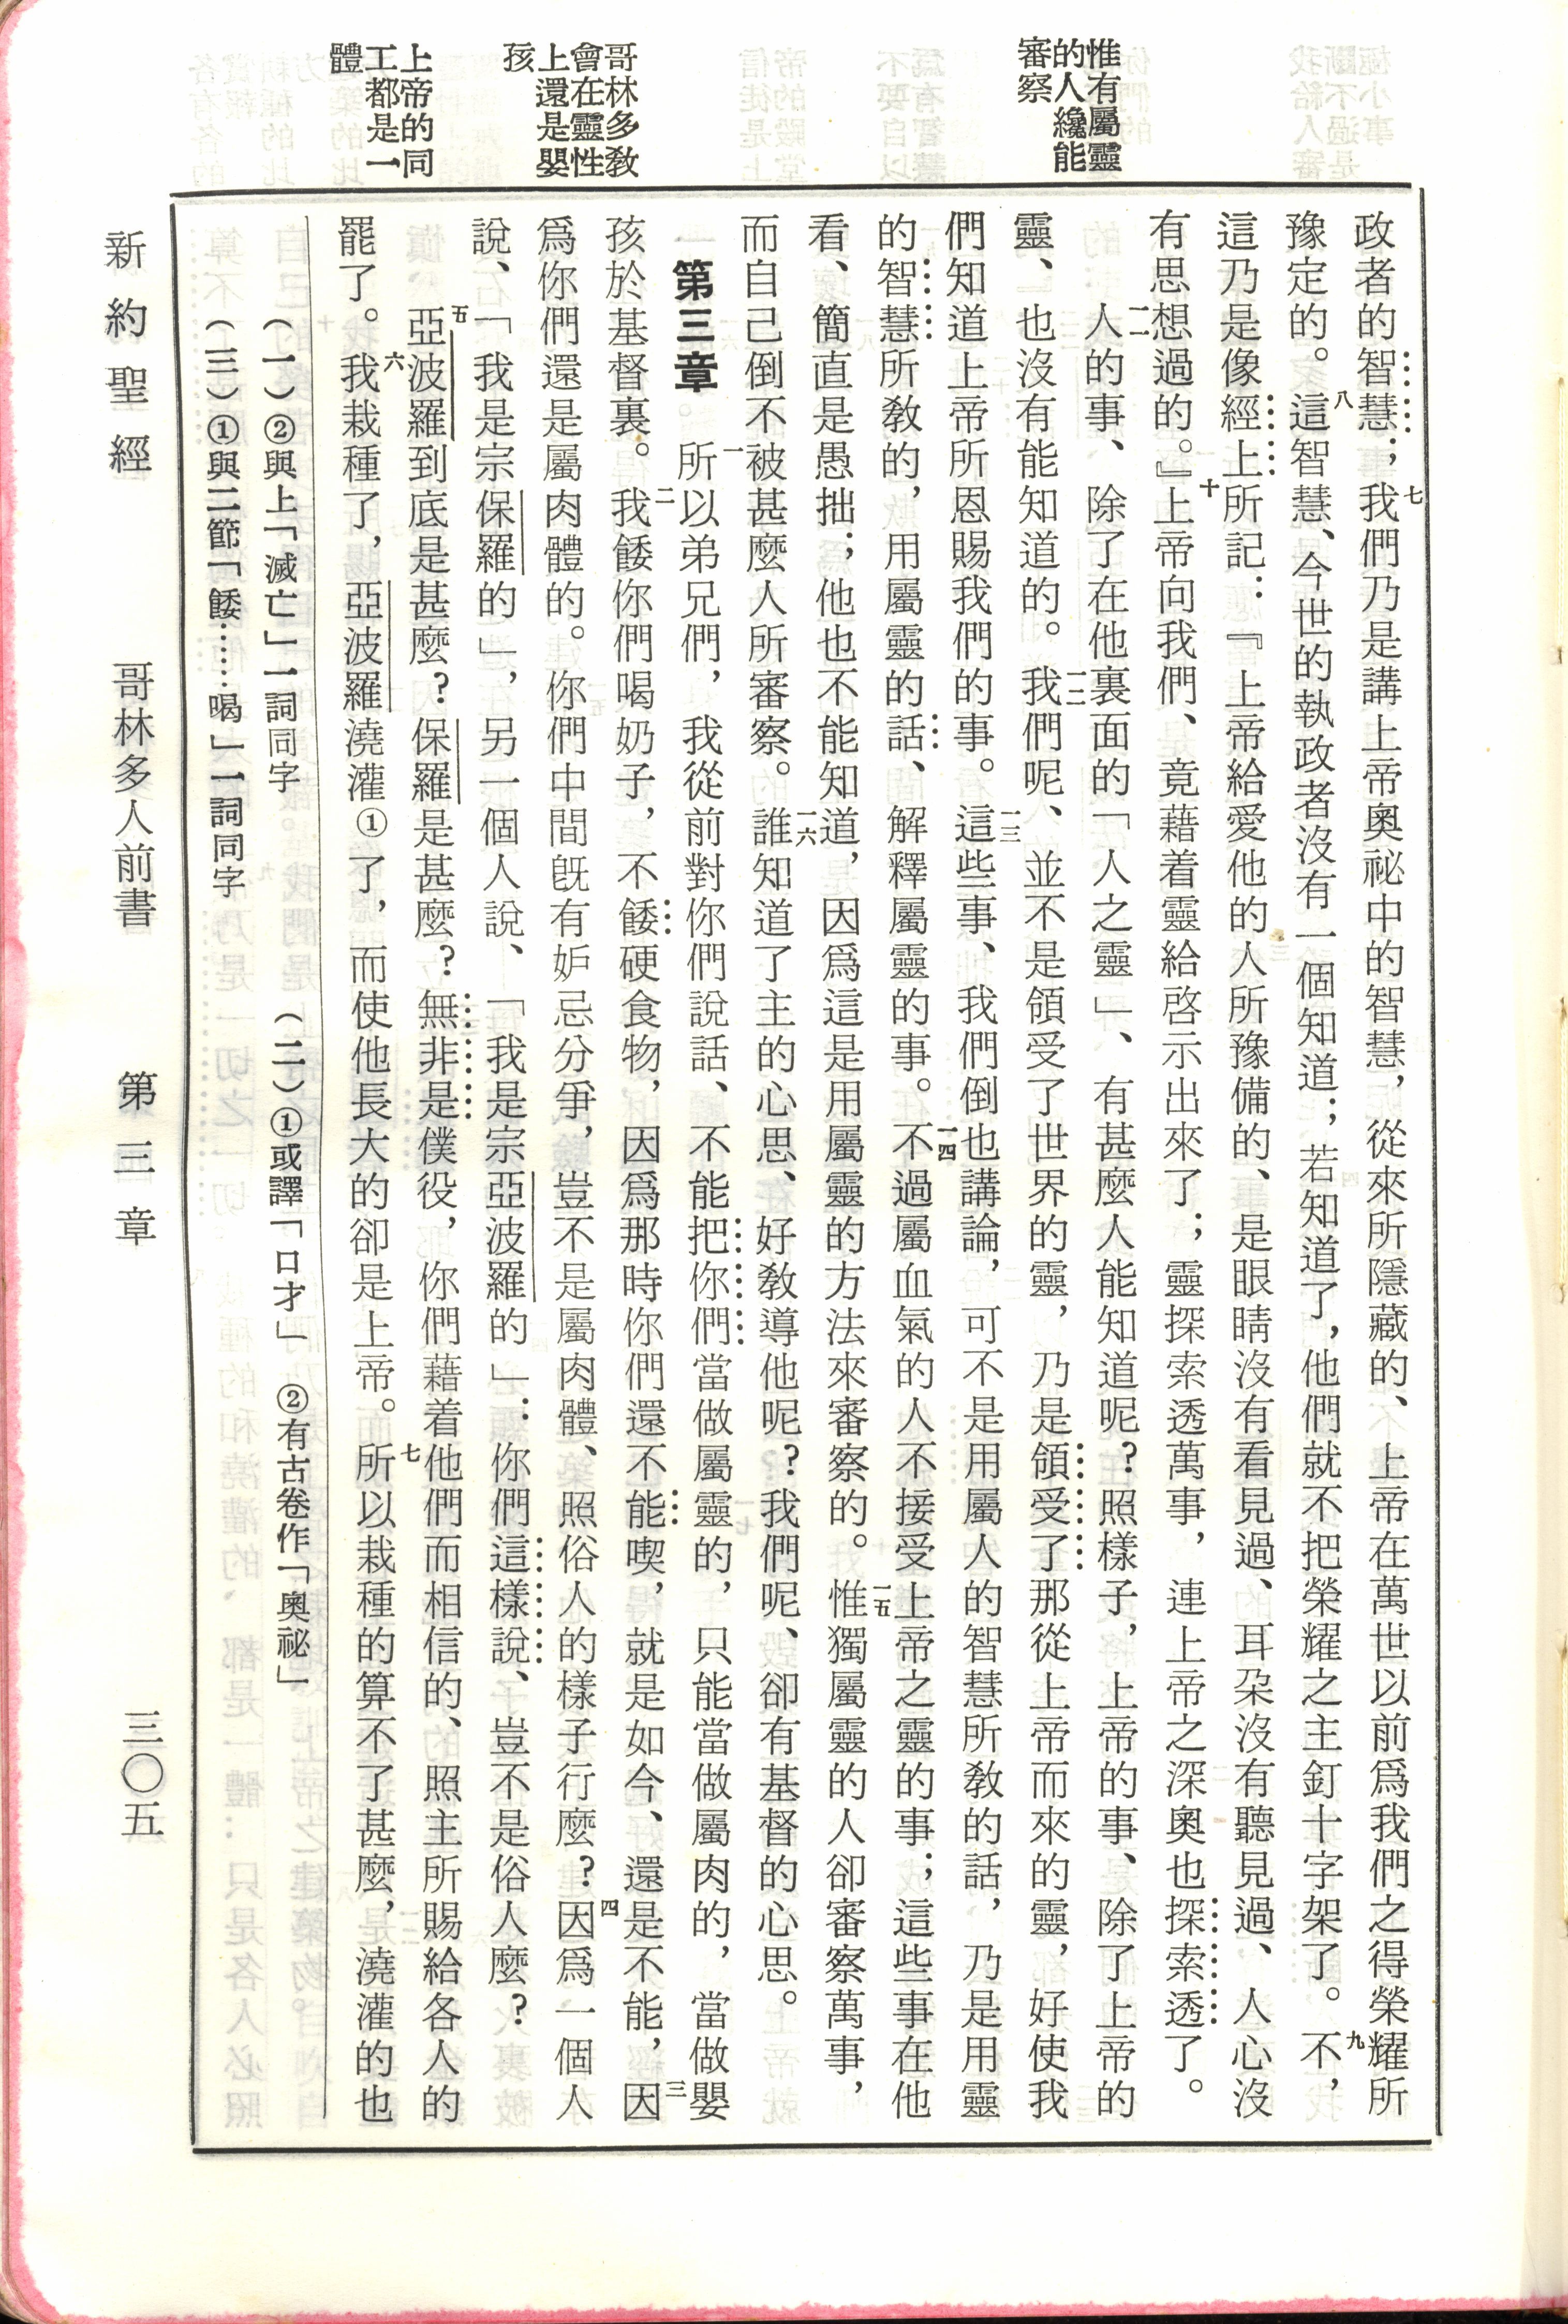 惟有屬靈
的人纔能
審察
哥林多教
會在靈性
上還是嬰
孩
上帝的同
工都是一
體
政者的智慧；七我們乃是講上帝奧祕中的智慧，從來所隱藏的、上帝在萬世以前爲我們之得榮耀所
豫定的。八這智慧、今世的執政者沒有一個知道；若知道了，他們就不把榮耀之主釘十字架了。九不，
這乃是像經上所記：『上帝給愛他的人所豫備的、是眼睛沒有看見過、耳朶沒有聽見過、人心沒
有思想過的。』十上帝向我們、竟藉着靈給啓示出來了；靈探索透萬事，連上帝之深奧也探索透了。
一一人的事、除了在他裏面的「人之靈」、有甚麼人能知道呢？照樣子，上帝的事、除了上帝的
靈、也沒有能知道的。一二我們呢、並不是領受了世界的靈，乃是領受了那從上帝而來的靈，好使我
們知道上帝所恩賜我們的事。一三這些事、我們倒也講論，可不是用屬人的智慧所教的話，乃是用靈
的智慧所教的，用屬靈的話、解釋屬靈的事。一四不過屬血氣的人不接受上帝之靈的事；這些事在他
看、簡直是愚拙；他也不能知道，因爲這是用屬靈的方法來審察的。一五惟獨屬靈的人卻審察萬事，
而自己倒不被甚麼人所審察。一六誰知道了主的心思、好教導他呢？我們呢、卻有基督的心思。
第三章　一所以弟兄們，我從前對你們說話、不能把你們當做屬靈的，只能當做屬肉的，當做嬰
孩於基督裏。二我餧你們喝奶子，不餧硬食物，因爲那時你們還不能喫，就是如今、還是不能，三因
爲你們還是屬肉體的。你們中間旣有妒忌分爭，豈不是屬肉體、照俗人的樣子行麼？四因爲一個人
說、「我是宗保羅的」，另一個人說、「我是宗亞波羅的」：你們這樣說、豈不是俗人麼？
五亞波羅到底是甚麼？保羅是甚麼？無非是僕役，你們藉着他們而相信的、照主所賜給各人的
罷了。六我栽種了，亞波羅澆灌①了，而使他長大的卻是上帝。七所以栽種的算不了甚麼，澆灌的也
（一）②與上「滅亡」一詞同字　（二）①或譯「口才」　②有古卷作「奧祕」
（三）①與二節「餧……喝」一詞同字
新約聖經　哥林多人前書　第三章　三〇五